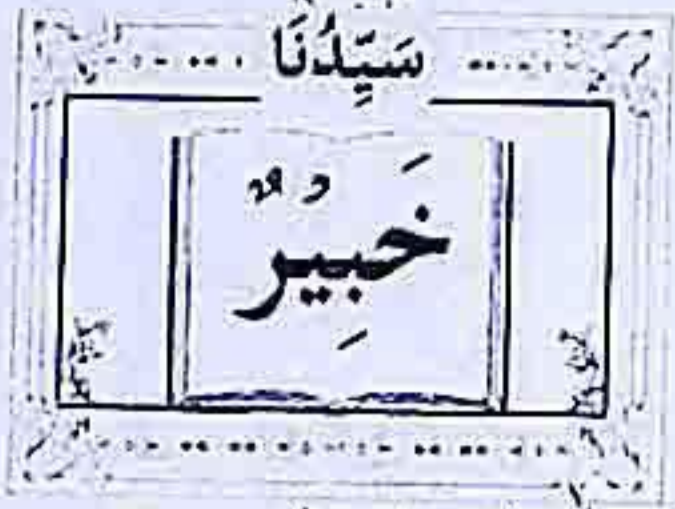 سَيِّدُنَا
خَبِيْرٌ